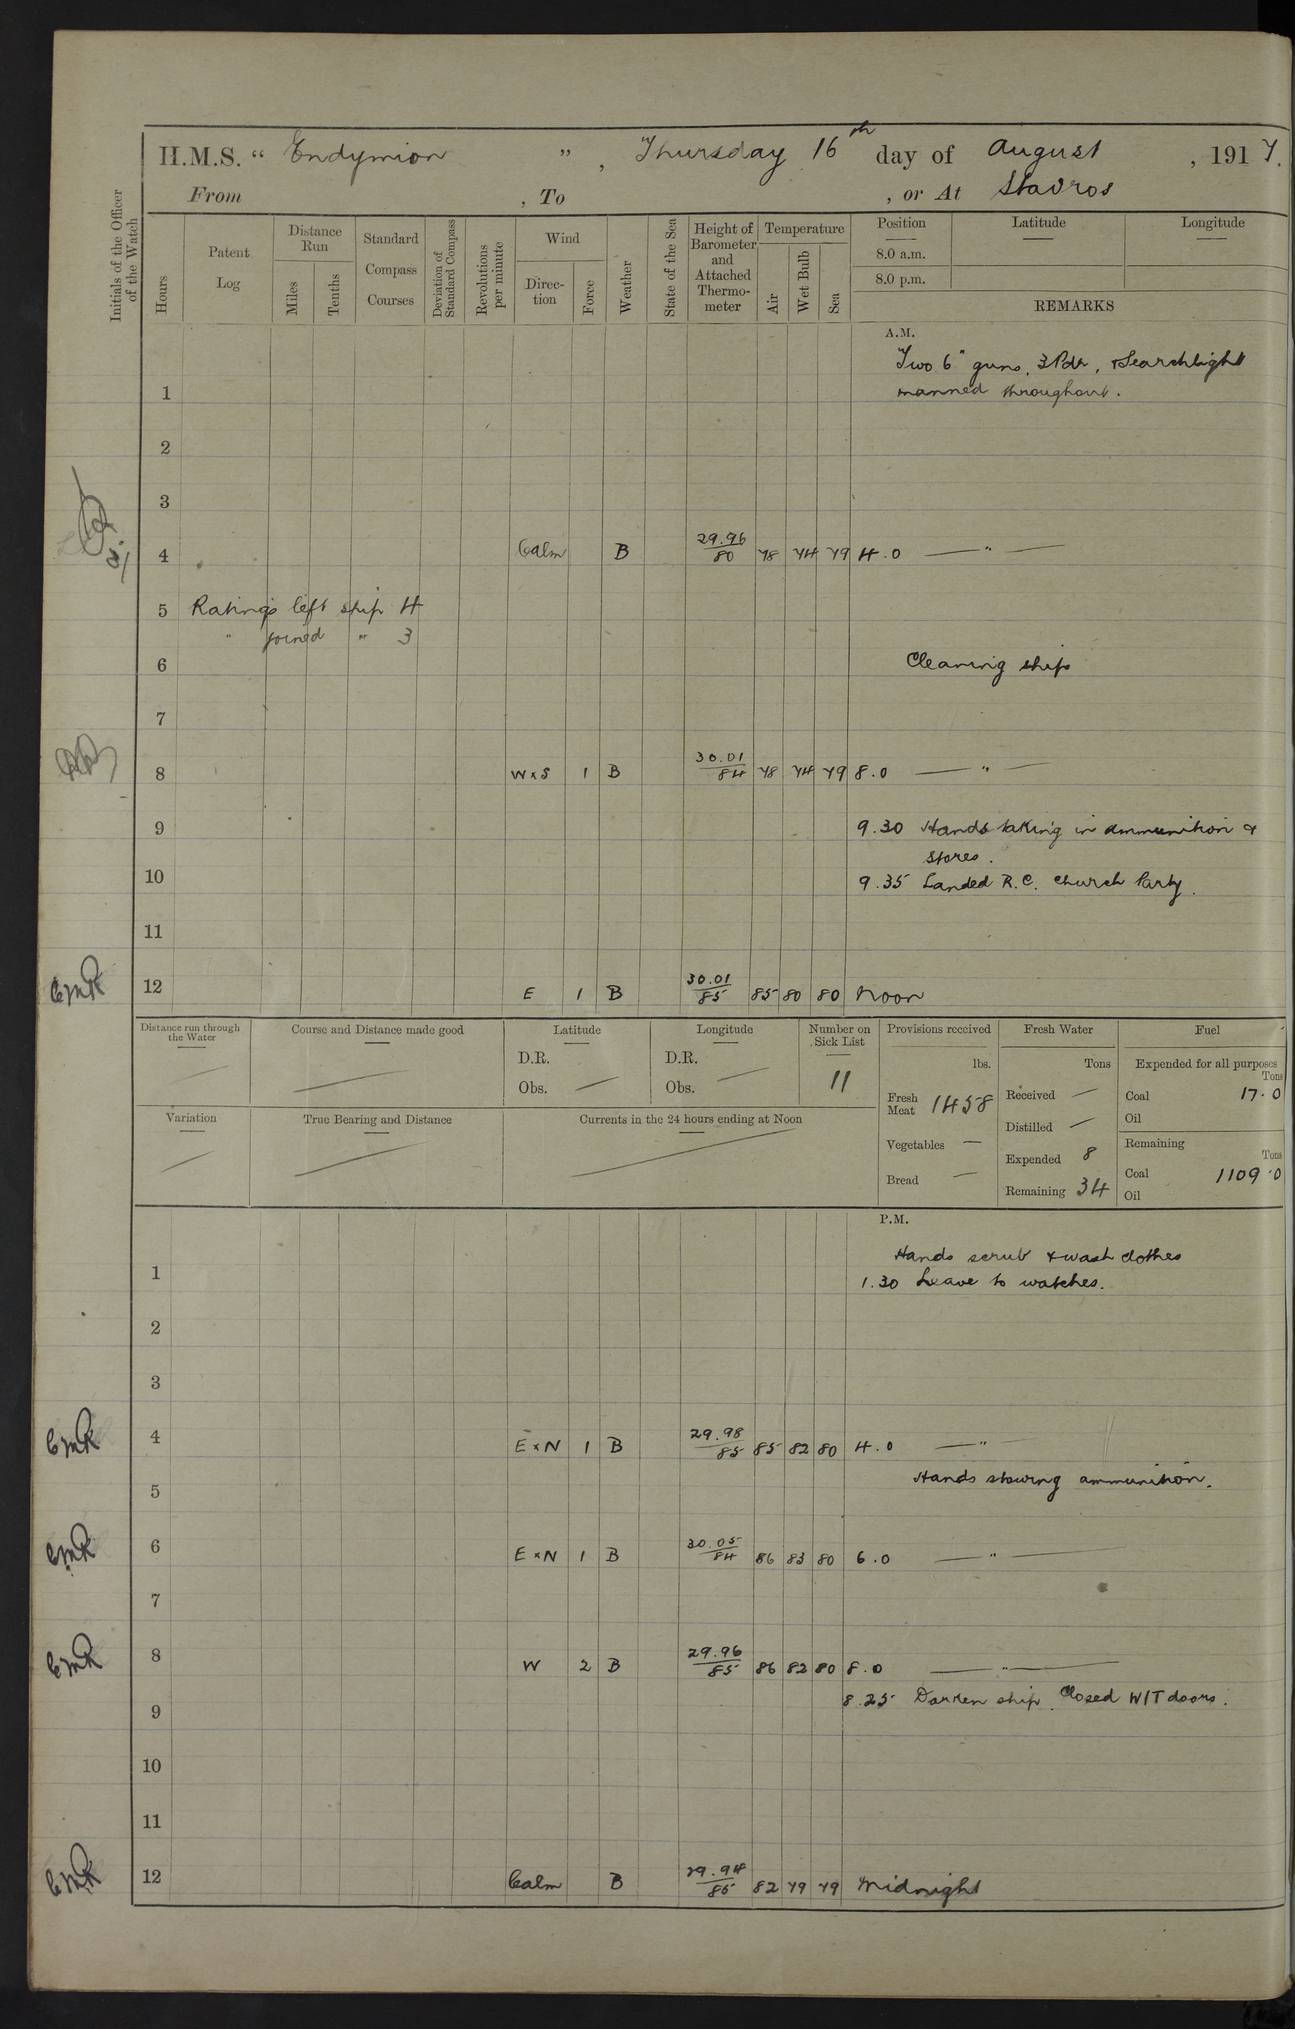 H.M.S. “ Endymion ” , Thursday 16th day of August , 1917.
From , To , or At Stavros
Initials of the Officer of the Watch
Hours
Patent Log
Distance Run
Miles
Tenths
Standard Compass Courses
Deviation of Standard Compass
Revolutions per minute
Wind
Direc-tion
Force
Weather
State of the Sea
Height of Barometer and Attached Thermo-meter
Temperature
Air
Wet Bulb
Sea
Position Latitude Longitude
8.0 a.m.
8.0 p.m.
REMARKS
A.M.
Two 6" guns, 3 Pdr, & Searchlight
1 manned throughout.
2
3
4 Calm B 29.96/80 78 74 79 4.0 — " —
5 Ratings left ship 4
" joined " 3
6 Cleaning ship
7
8 W x S 1 B 30.01/84 78 74 79 8.0 — " —
9 9.30 Hands taking in ammunition &
stores.
10 9.35 Landed R.C. Church Party.
11
CMR 12 E 1 B 30.01/85 85 80 80 Noon
Distance run through the Water
Course and Distance made good
Latitude
D.R.
Obs. —
Longitude
D.R.
Obs. —
Number on Sick List
11
Provisions received
lbs.
Fresh Meat 1458
Vegetables —
Bread —
Fresh Water
Tons
Received —
Distilled —
Expended 8
Remaining 34
Fuel
Expended for all purposes
Tons
Coal 17.0
Oil
Remaining
Tons
Coal 1109.0
Oil
Variation
True Bearing and Distance
Currents in the 24 hours ending at Noon
P.M.
Hands scrub & wash clothes
1 1.30 Leave to watches.
2
3
CMR 4 E x N 1 B 29.98/85 85 82 80 4.0 — " —
Hands stowing ammunition.
5
CMR 6 E x N 1 B 30.05/84 86 83 80 6.0 — " —
7
CMR 8 W 2 B 29.96/85 86 82 80 8.0 — " —
8.25 Darken ship. Closed W/T doors.
9
10
11
CMR 12 Calm B 29.94/85 82 79 79 Midnight